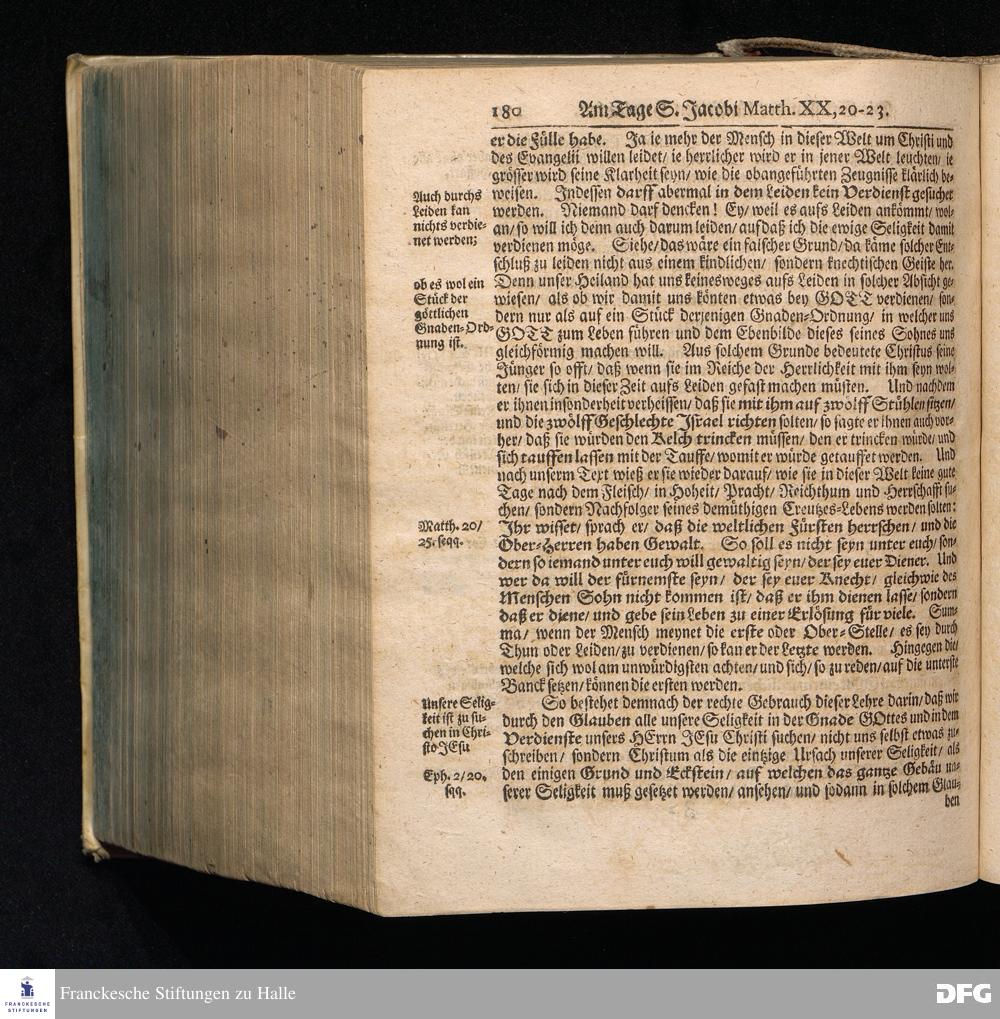 180 Am Tage S. Jacobi Matth. XX, 20-23.
er die Fülle habe. Ja ie mehr der Mensch in dieser Welt um Christi und
des Evangelii willen leidet/ ie herrlicher wird er in jener Welt leuchten/ ie
grösser wird seine Klarheit seyn/ wie die obangeführten Zeugnisse klärlich be-
weisen. Indessen darff abermal in dem Leiden kein Verdienst gesuchet
werden. Niemand darf dencken! Ey/ weil es aufs Leiden ankömmt/ wol-
an/ so will ich denn auch darum leiden/ auf daß ich die ewige Seligkeit damit
verdienen möge. Siehe/ das wäre ein falscher Grund/ da käme solcher Ent-
schluß zu leiden nicht aus einem kindlichen/ sondern knechtischen Geiste her.
Denn unser Heiland hat uns keinesweges aufs Leiden in solcher Absicht ge-
wiesen/ als ob wir damit uns könten etwas bey GOTT verdienen/ son-
dern nur als auf ein Stück derjenigen Gnaden-Ordnung/ in welcher uns
GOTT zum Leben führen und dem Ebenbilde dieses seines Sohnes uns
gleichförmig machen will. Aus solchem Grunde bedeutete Christus seine
Jünger so offt/ daß wenn sie im Reiche der Herrlichkeit mit ihm seyn wol-
ten/ sie sich in dieser Zeit aufs Leiden gefast machen müsten. Und nachdem
er ihnen insonderheit verheissen/ daß sie mit ihm auf zwölff Stühlen sitzen/
und die zwölff Geschlechte Israel richten solten/ so sagte er ihnen auch vor-
her/ daß sie würden den Kelch trincken müssen/ den er trincken würde/ und
sich tauffen lassen mit der Tauffe/ womit er würde getauffet werden. Und
nach unserm Text wieß er sie wieder darauf/ wie sie in dieser Welt keine gute
Tage nach dem Fleisch/ in Hoheit/ Pracht/ Reichthum und Herrschafft su-
chen/ sondern Nachfolger seines demüthigen Creutzes-Lebens werden solten:
Ihr wisset/ sprach er/ daß die weltlichen Fürsten herrschen/ und die
Ober-Herren haben Gewalt. So soll es nicht seyn unter euch/ son-
dern so iemand unter euch will gewaltig seyn/ der sey euer Diener. Und
wer da will der fürnemste seyn/ der sey euer Knecht/ gleichwie des
Menschen Sohn nicht kommen ist/ daß er ihm dienen lasse/ sondern
daß er diene/ und gebe sein Leben zu einer Erlösung für viele. Sum-
ma/ wenn der Mensch meynet die erste oder Ober-Stelle/ es sey durch
Thun oder Leiden/ zu verdienen/ so kan er der Letzte werden. Hingegen die/
welche sich wol am unwürdigsten achten/ und sich/ so zu reden/ auf die unterste
Banck setzen/ können die ersten werden.
So bestehet demnach der rechte Gebrauch dieser Lehre darin/ daß wir
durch den Glauben alle unsere Seligkeit in der Gnade GOttes und in dem
Verdienste unsers HErrn JEsu Christi suchen/ nicht uns selbst etwas zu-
schreiben/ sondern Christum als die eintzige Ursach unserer Seligkeit/ als
den einigen Grund und Eckstein/ auf welchen das gantze Gebäu un-
serer Seligkeit muß gesetzet werden/ ansehen/ und sodann in solchem Glau-
ben
Auch durchs
Leiden kan
nichts verdie-
net werden;
ob es wol ein
Stück der
göttlichen
Gnaden-Ord-
nung ist.
Matth. 20/
25. seqq.
Unsere Selig-
keit ist zu su-
chen in Chri-
sto JEsu
Eph. 2/20.
sqq.
FRANCKESCHE
STIFTUNGEN
Franckesche Stiftungen zu Halle
DFG